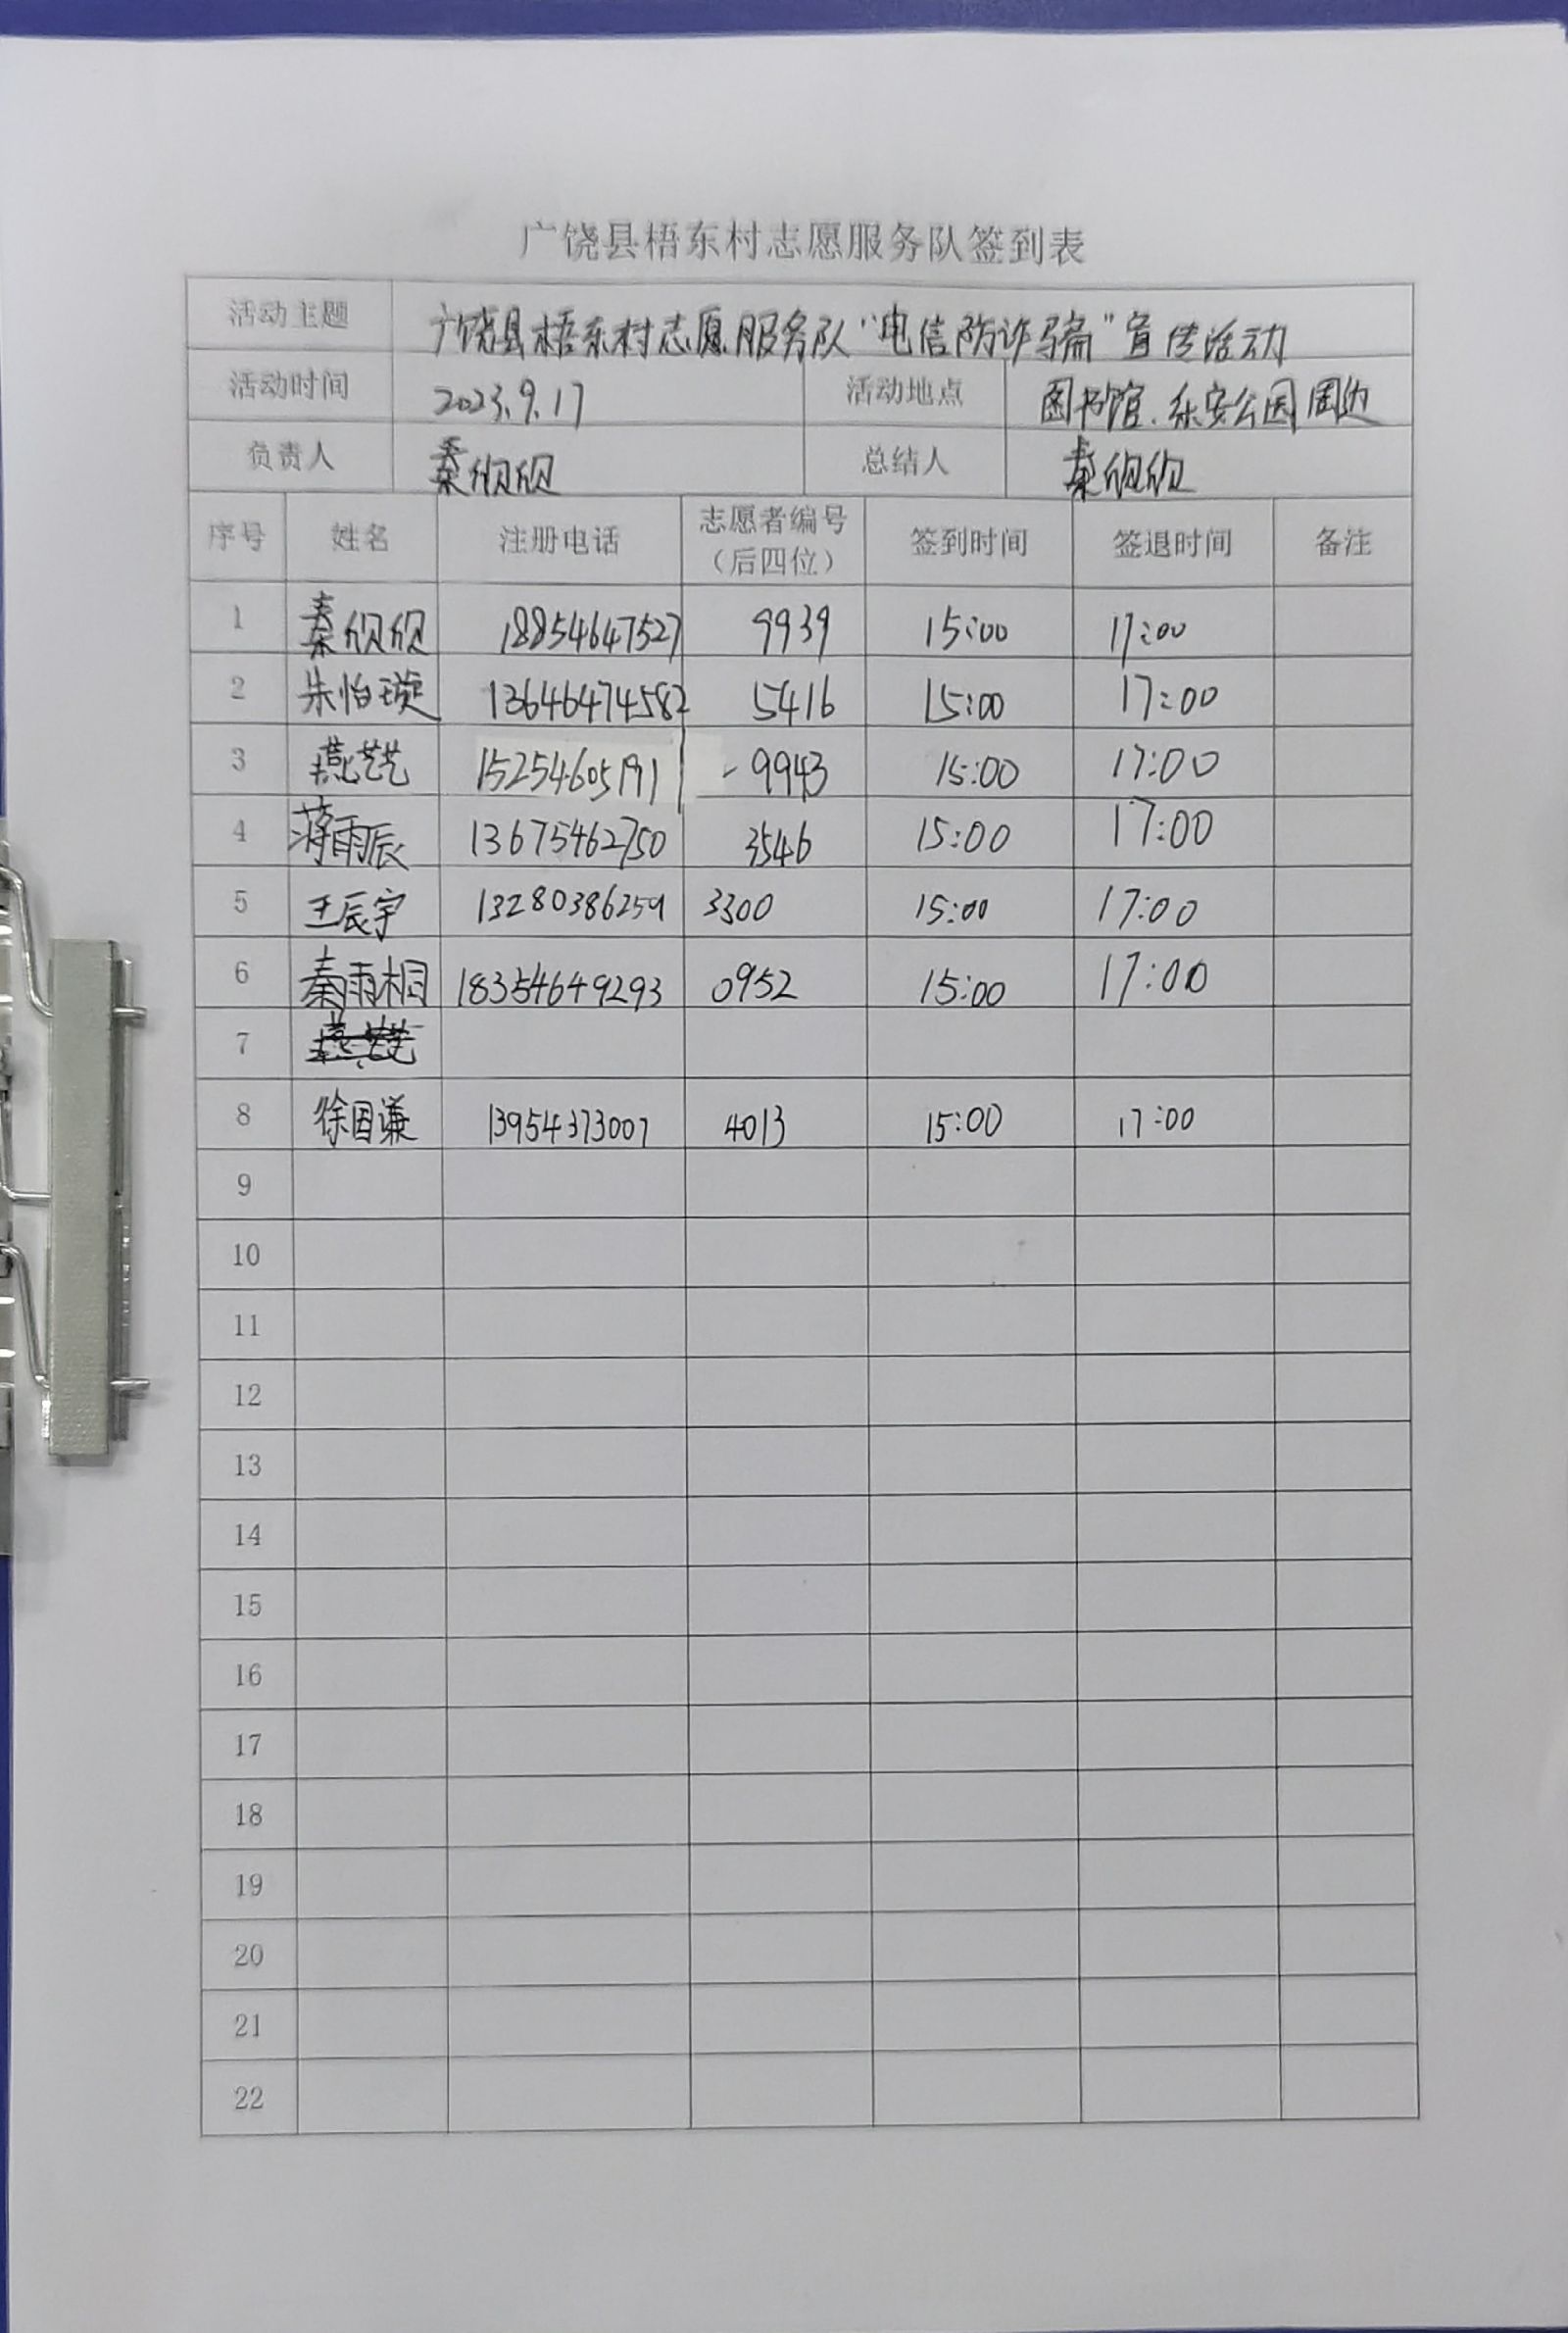 广饶县梧东村志愿服务队签到表
活动主题 广饶县梧东村志愿服务队“电信防诈骗”宣传活动
活动时间 2023.9.17 活动地点 图书馆.乐安公园周边
负责人 秦欣欣 总结人 秦欣欣
序号 姓名 注册电话 志愿者编号（后四位） 签到时间 签退时间 备注
1 秦欣欣 18854647527 9939 15:00 17:00
2 朱怡璇 13646474582 5416 15:00 17:00
3 燕艺艺 15254605191 9943 15:00 17:00
4 蒋雨辰 13675462750 3546 15:00 17:00
5 王辰宇 13280386259 3300 15:00 17:00
6 秦雨桐 18354649293 0952 15:00 17:00
7 燕艺艺
8 徐国谦 13954373007 4013 15:00 17:00
9
10
11
12
13
14
15
16
17
18
19
20
21
22